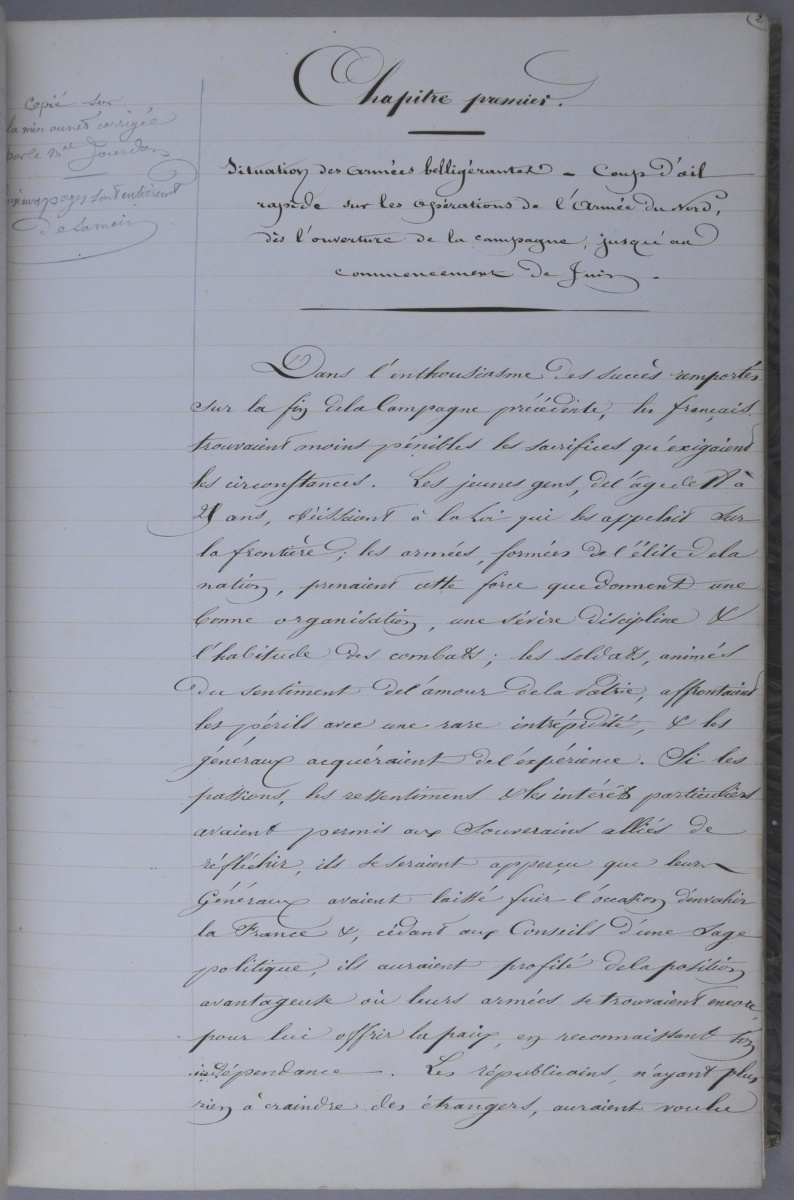 2
Chapitre premier.
Situation des armées belligérantes - Coup d'œil
rapide sur les opérations de l'Armée du Nord,
dès l'ouverture de la campagne, jusqu'au
commencement de Juin.
copié sur
la minute corrigée
par le Mal Jourdan
pages sont entièrement
de sa main
Dans l'enthousiasme des succès remportés
sur la fin de la Campagne précédente, les français
trouvaient moins pénibles les sacrifices qu'exigaient
les circonstances. Les jeunes gens, de l'âge de 18 à
25 ans, obéissaient à la Loi qui les appelait sur
la frontière; les armées, formées de l'élite de la
nation, prenaient cette force que donnent une
bonne organisation, une sévère discipline &
l'habitude des combats; les soldats, animés
du sentiment de l'amour de la Patrie, affrontaient
les périls avec une rare intrépidité, & les
généraux acquéraient de l'expérience. Si les
passions, les ressentimens & les intérêts particuliers
avaient permis aux Souverains alliés de
réfléchir, ils se seraient apperçu que leurs
Généraux avaient laissé fuir l'occasion d'envahir
la France &, cédant aux Conseils d'une sage
politique, ils auraient profité de la position
avantageuse où leurs armées se trouvaient encore,
pour lui offrir la paix, en reconnaissant son
indépendance. Les républicains, n'ayant plus
rien à craindre des étrangers, auraient voulu